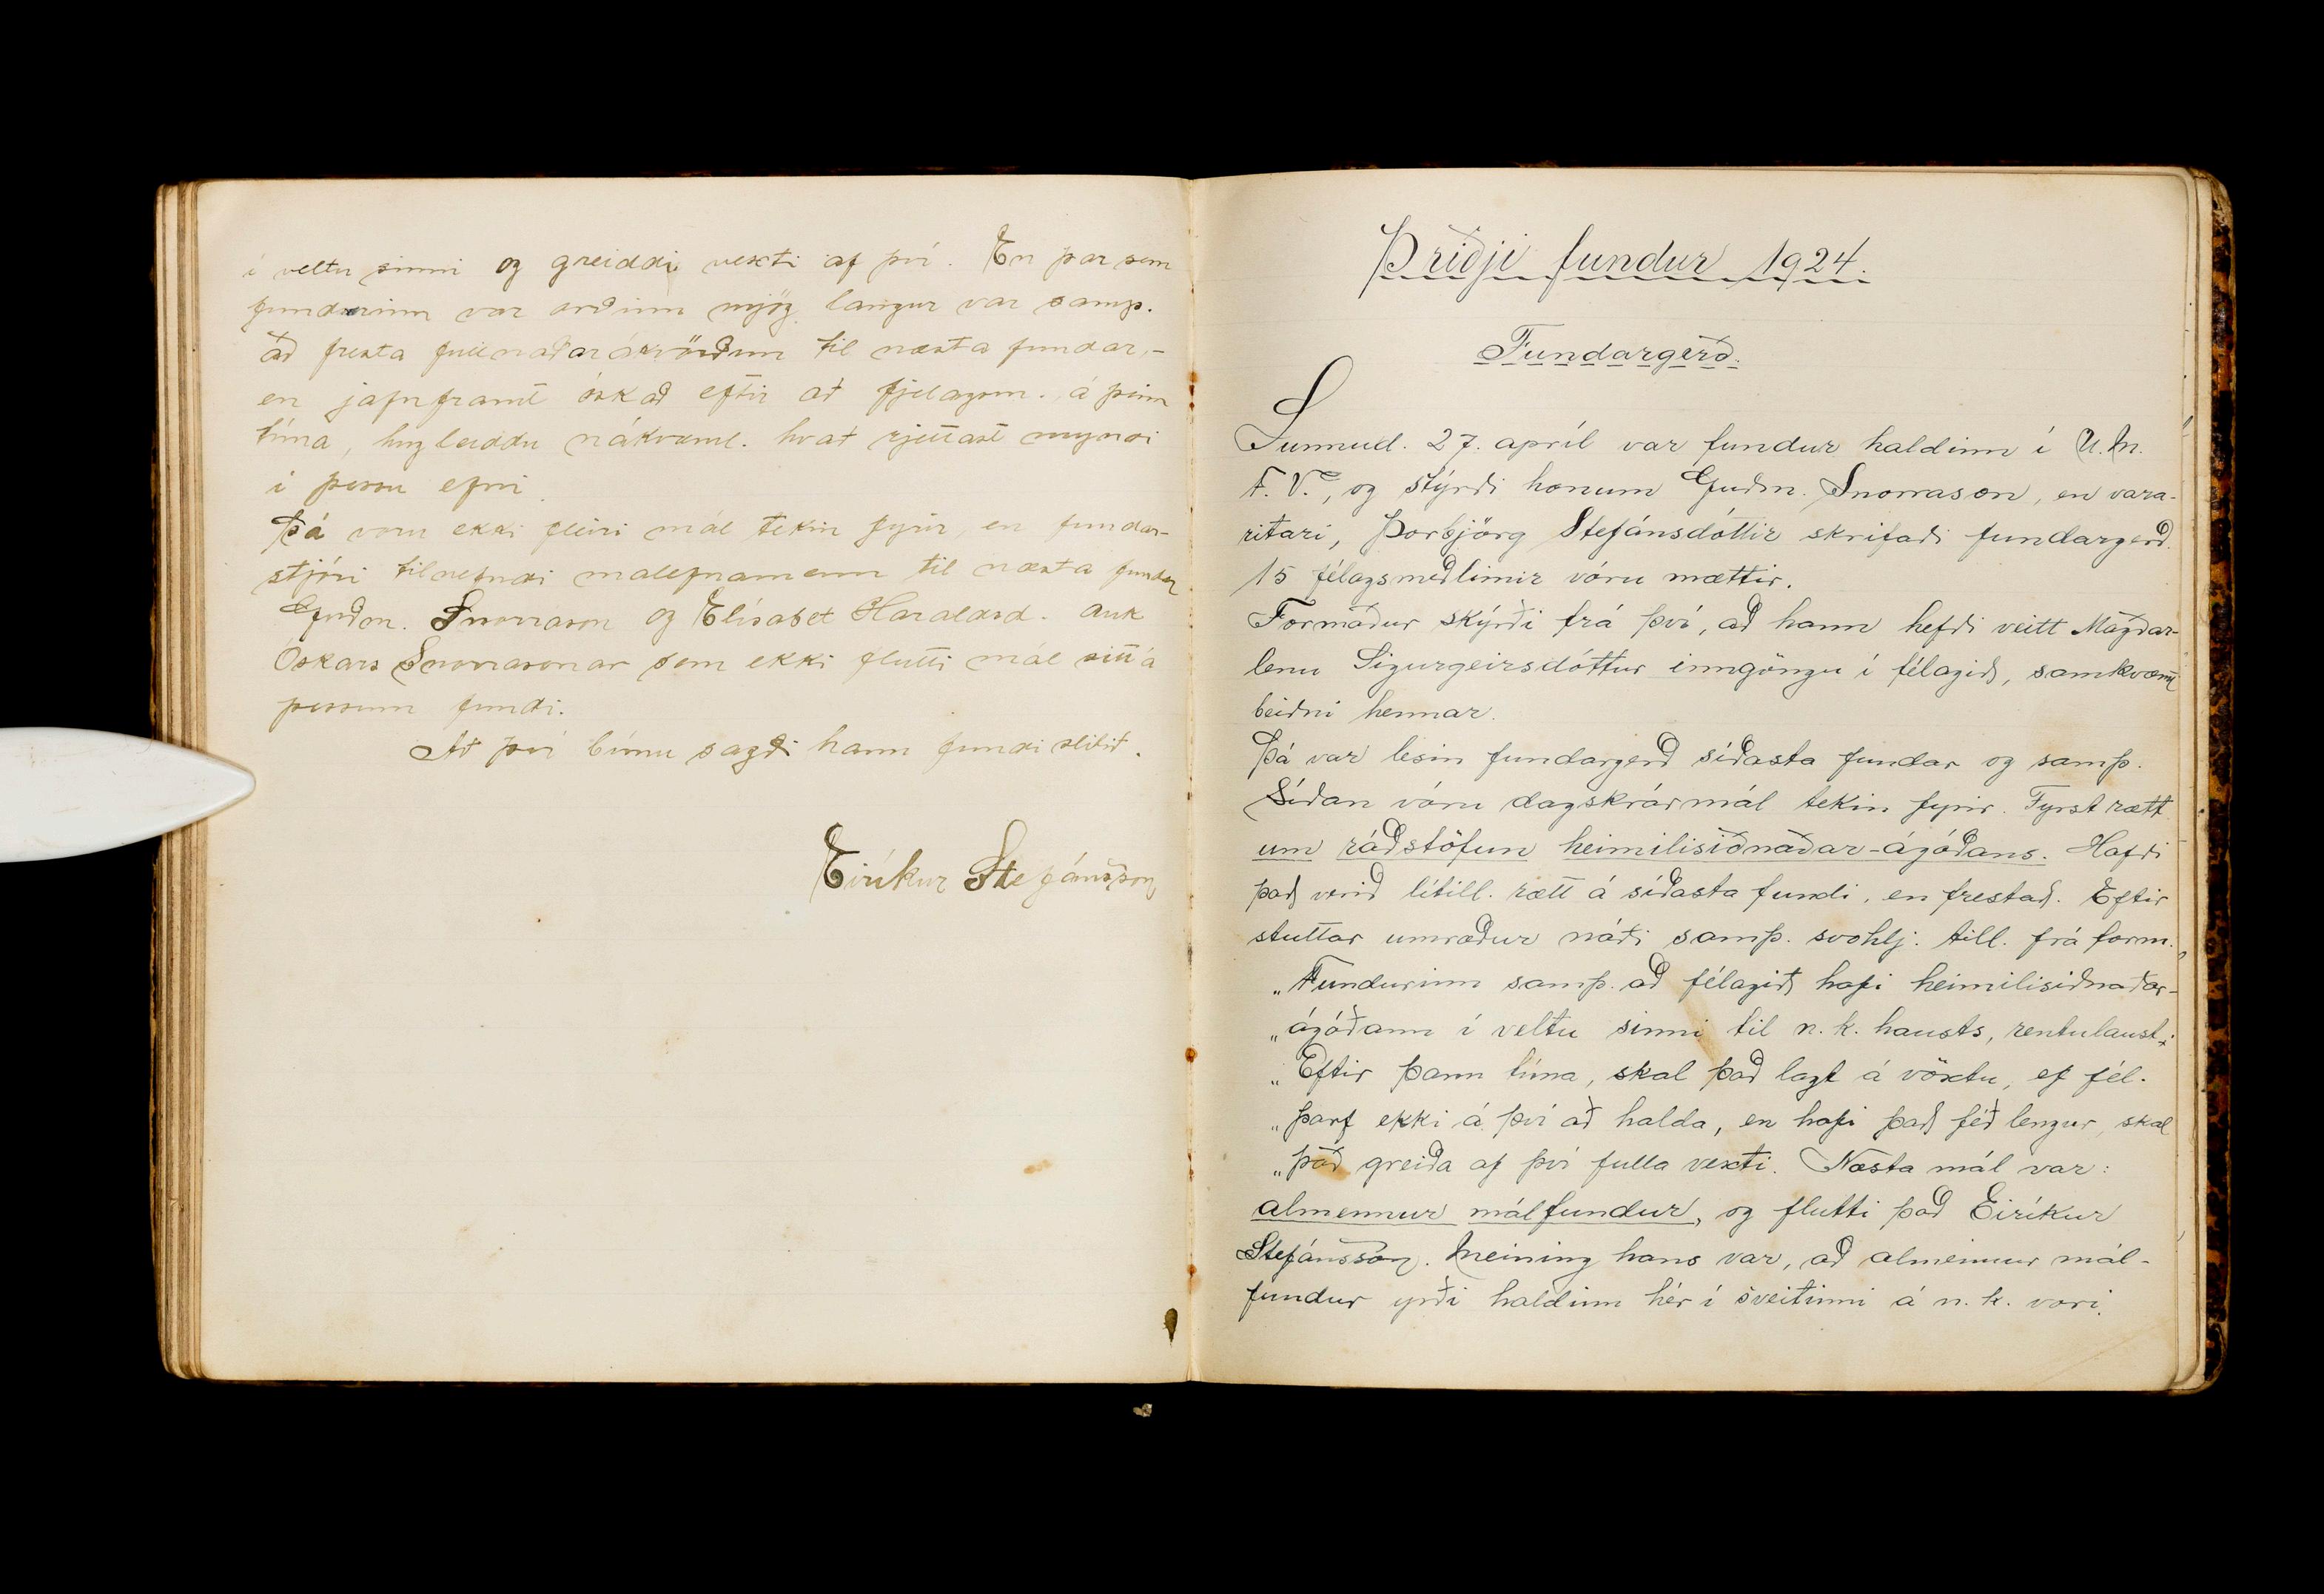 í veltu sinni og greiddi vexti af því. En þar sem
fundurinn var orðinn mjög langur var samþ.
að fresta fullnaðarákvörðun til næsta fundar, -
en jafnframt óskað eftir að fjelagsm. á þeim
tíma, hugleiddu nákvæml. hvað rjettast myndi
í þessu efni.
Þá voru ekki fleiri mál tekin fyrir, en fundar-
stjóri tilnefndi malefnamenn til næsta fundar
Guðm. Snorrason og Elísabet Haraldsd. auk
Óskars Snorrasonar sem ekki flutti mál sitt á
þessum fundi.
Að því búnu sagði hann fundi slitið.
Eiríkur Stefánsson
Þriðji fundur 1924.
Fundargerð.
Sunnud. 27. apríl var fundur haldinn í U.M.
F.V., og stýrði honum Guðm. Snorrason, en vara-
ritari, Þorbjörg Stefánsdóttir skrifaði fundargerð.
15 félagsmeðlimir vóru mættir.
Formaður skýrði frá því, að hann hefði veitt Magðar-
lenu Sigurgeirsdóttur inngöngu í félagið, samkvæmt
beiðni hennar.
Þá var lesin fundargerð síðasta fundar og samþ.
Síðan vóru dagskrármál tekin fyrir. Fyrst rætt
um ráðstöfun heimilisiðnaðar-ágóðans. Hafði
það verið lítill. rætt á síðasta fundi, en frestað. Eftir
stuttar umræður náði samþ. svohlj. till. frá form.
„Fundurinn samþ. að félagið hafi heimilisiðnaðar-
„ágóðann í veltu sinni til n.k. hausts, rentulaust.
„Eftir þann tíma, skal það lagt á vöxtu, ef fél.
„þarf ekki á því að halda, en hafi það féð lengur, skal
„það greiða af því fulla vexti. Næsta mál var:
almennur málfundur, og flutti það Eiríkur
Stefánsson. Meining hans var, að almennur mál-
fundur yrði haldinn hér í sveitinni á n.k. vori.